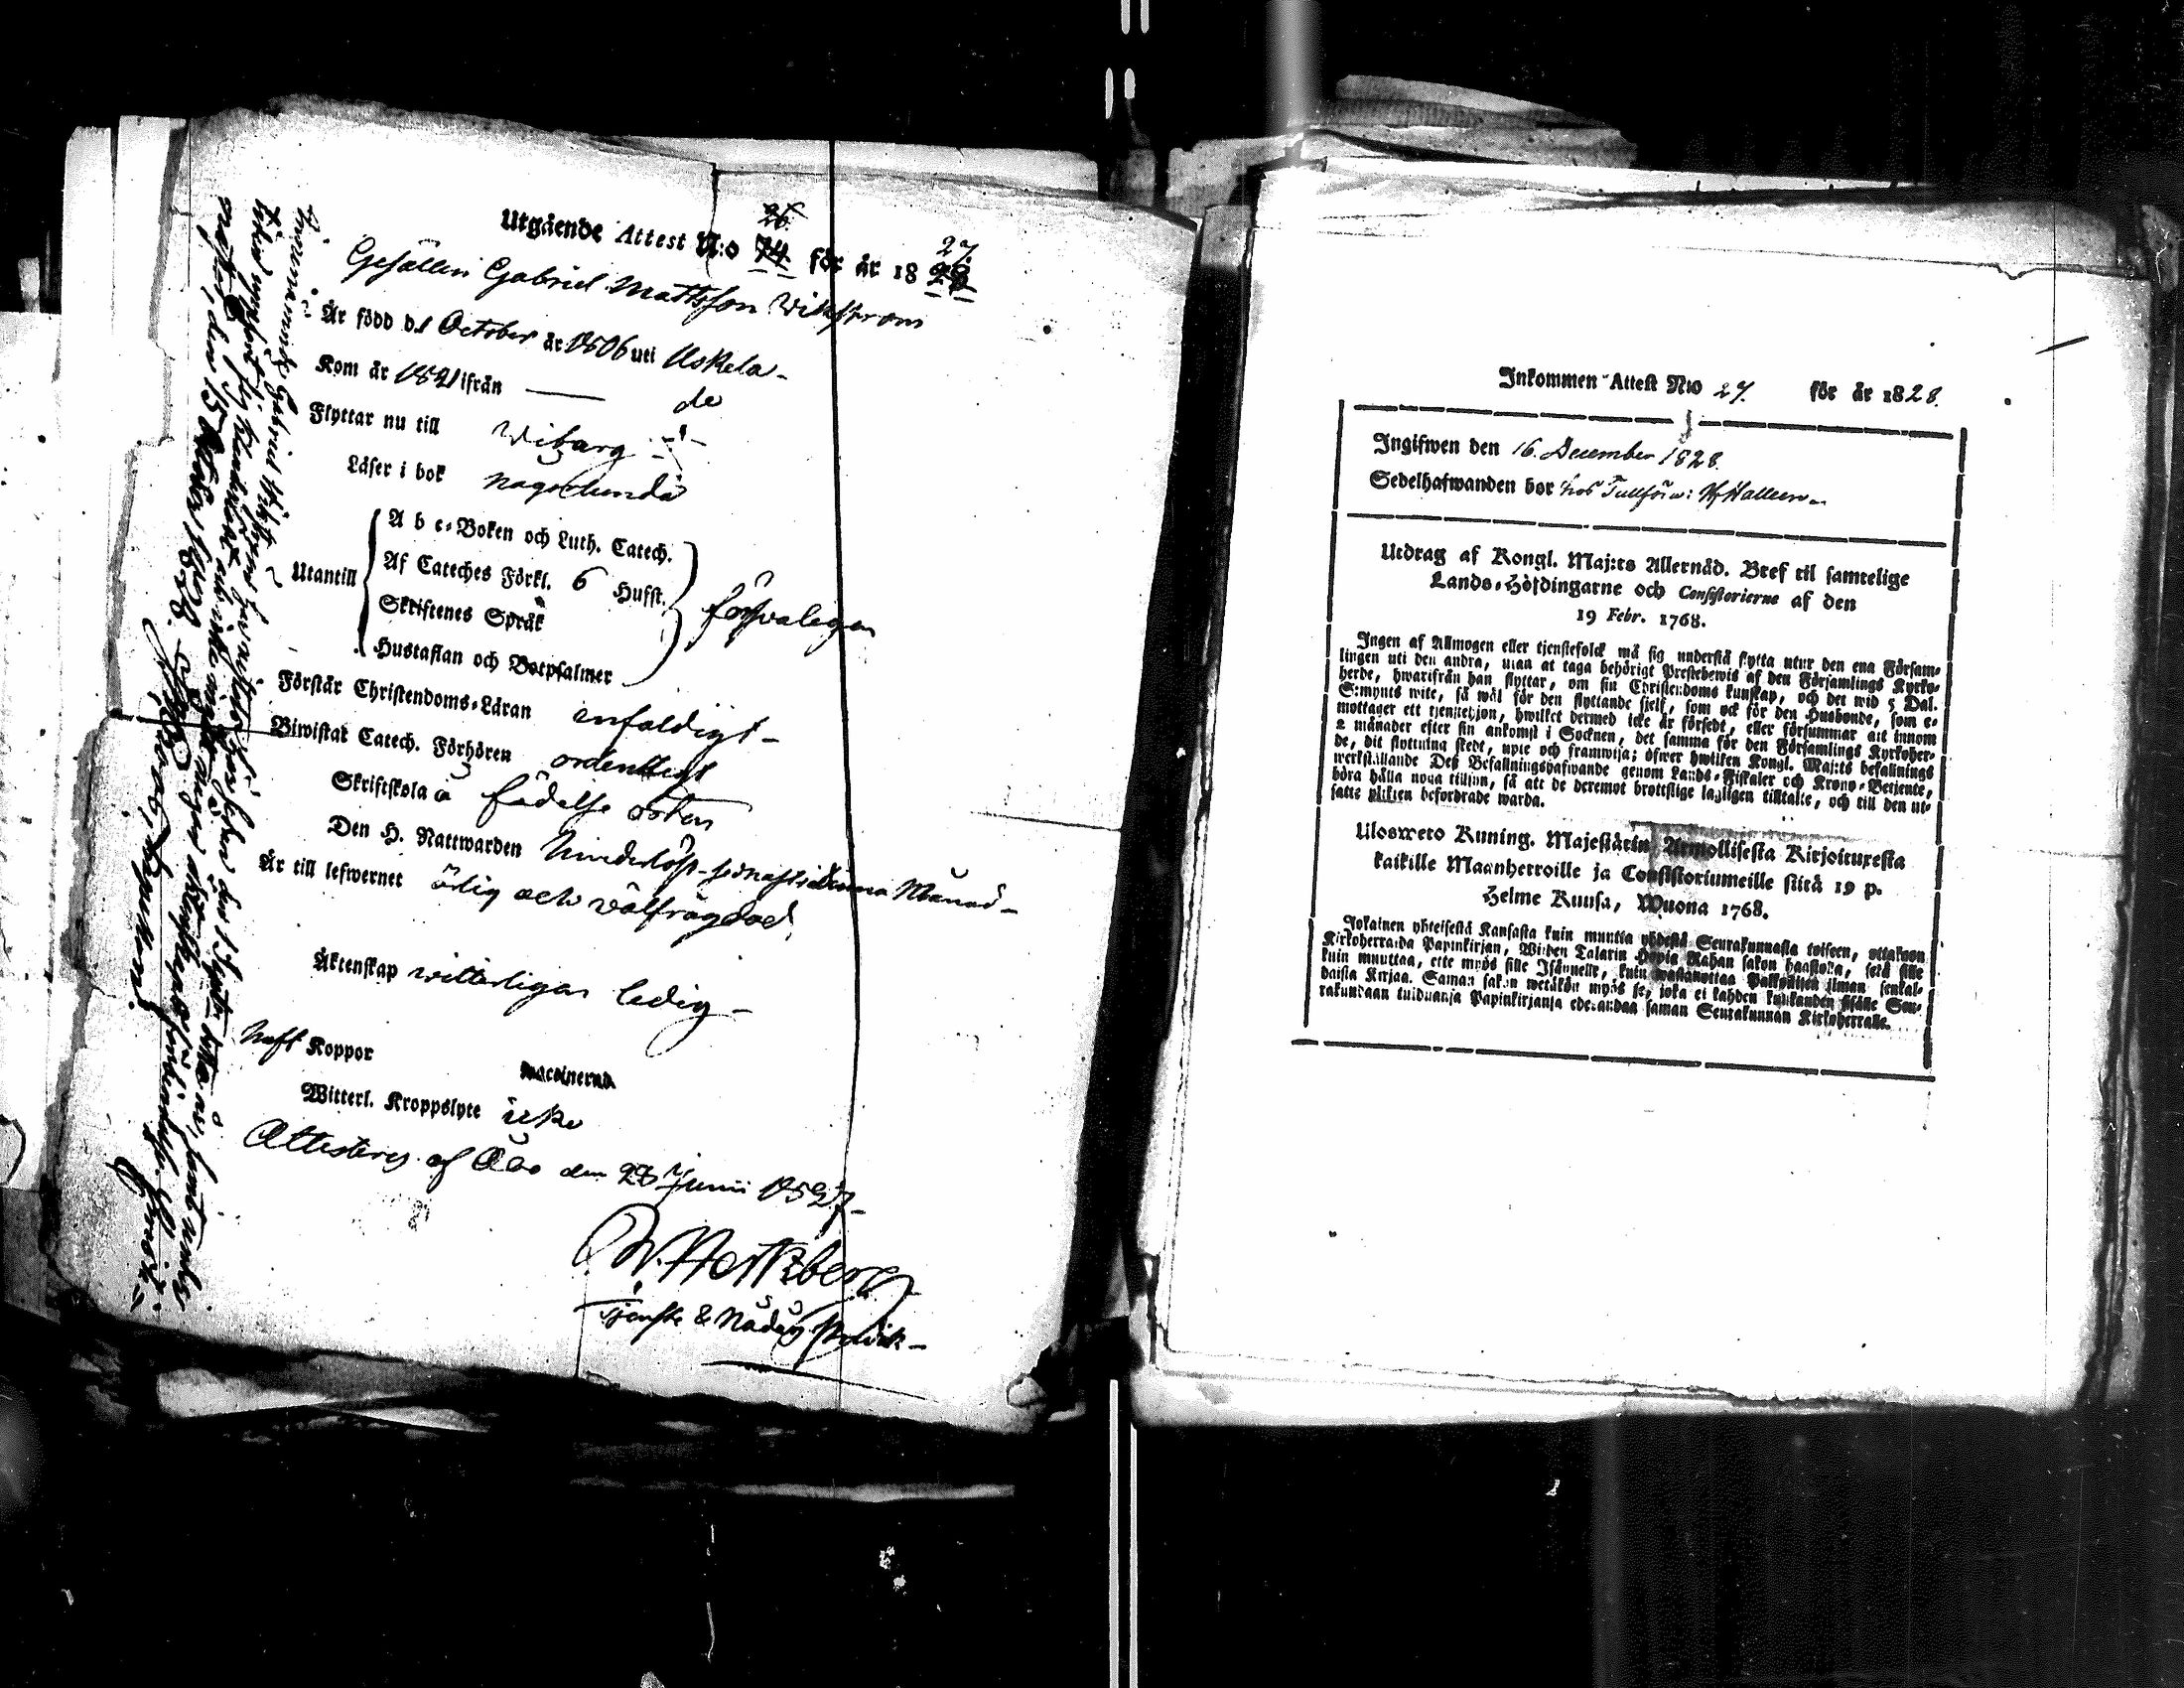 Utgående Attest N:o 74 26. för år 18 28 27.
Gesällen Gabriel Mattsson Wikström
Är född d. 1 October år 1806 uti Uskela -
Kom år 1821 ifrån — de
Flyttar nu till Wiborg
Läser i bok någorlunda
Utantill
A b c-Boken och Luth. Catech.
Af Cateches Förkl. 6 Hufst.
Skriftenes Språk
Hustaflan och Botpsalmer
försvarligen
Förstår Christendoms-Läran enfaldigt -
Biwistat Catech. Förhören ordentligt
Skriftskola å födelse orten
Den H. Nattwarden hinderlöst sednast i denna Månad -
Är till lefwernet ärlig och välfrägdad
Äktenskap witterligen ledig -
Haft Koppor vaccinerad
Witterl. Kroppslyte icke
Attesteres af Åbo den 28 Junii 1827 -
Hertzberg
Tjenste & Nådårs Predik. -
Innevarande Gabriel Wikström
Inkommen Attest N:o 27. för år 1828.
Ingifwen den 16. December 1828.
Sedelhafwanden bor hos Tullförw:
Utdrag af Kongl. Maj:ts Allernåd. Bref til samtelige
Lands-Höfdingarne och Consistorierne af den
19 Febr. 1768.
Ingen af Allmogen eller tjenstefolck må sig understå flytta utur den ena Försam-
lingen uti den andra, utan at taga behörigt Prestebewis af den Församlings Kyrko-
herde, hwarifrån han flyttar, om sin Christendoms kunskap, och det wid 5 Dal.
S:mynts wite, så wäl för den flyttande sjelf, som ock för den Husbonde, som e-
mottager ett tjenstehjon, hwilket dermed icke är försedt, eller försummar att innom
2 månader efter sin ankomst i Socknen, det samma för den Församlings Kyrkoher-
de, dit flyttning skedt, upte och framwisa; öfwer hwilken Kongl. Maj:ts befallnings
werkställande Deß Befallningshafwande genom Lands-Fiskaler och Krono-Betjente,
böra hålla noga tillsyn, så att de deremot brottslige lagligen tilltalte, och till den ut-
satte plikten befordrade warda.
Uloswero Kuning. Majestärin Armollisesta Kirjoituxesta
kaikille Maanherroille ja Consistoriumeille siitä 19 p.
Helme Kuusa, Wuona 1768.
Jokainen yhteisestä Kansasta kuin muutta yhdestä Seurakunnasta toiseen, ottakoon
Kirkoherralda Papinkirjan, Wiiden Talarin Hopia Rahan sakon haastolla, sekä sille
kuin muuttaa, ette myös sille Isännelle, kuin wastanottaa Palkollisen ilman senkal-
daista Kirjaa. Saman sakon wetäkön myös se, joka ei kahden kuukauden sisälle Seu-
rakundaan tulduansa Papinkirjansa edesandaa saman Seurakunnan Kirkoherralle.